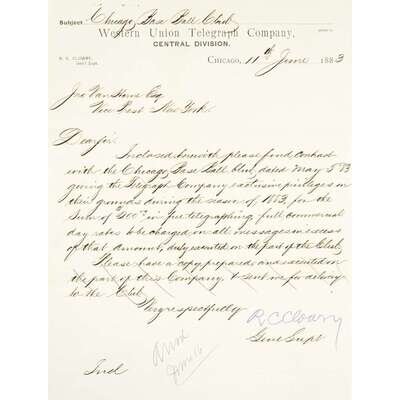 Subject Chicago Base Ball Club
Western Union Telegraph Company,
CENTRAL DIVISION.
R. C. CLOWRY,
Gen'l Supt.
CHICAGO, 11th June 1883
Jno Van Horne Esq
Vice Prest New York.
Dear Sir
Inclosed herewith please find contract
with the Chicago Base Ball Club, dated May 5th 83
giving the Telegraph Company exclusive privileges on
their grounds during the season of 1883, for the
sum of $200 in free telegraphing full commercial
day rates to be charged on all messages in excess
of that amount, duly executed on the part of the Club.
Please have a copy prepared and executed on
the part of this Company & sent me for delivery
to the Club.
Very respectfully
R C Clowry
Genl Supt
Incl